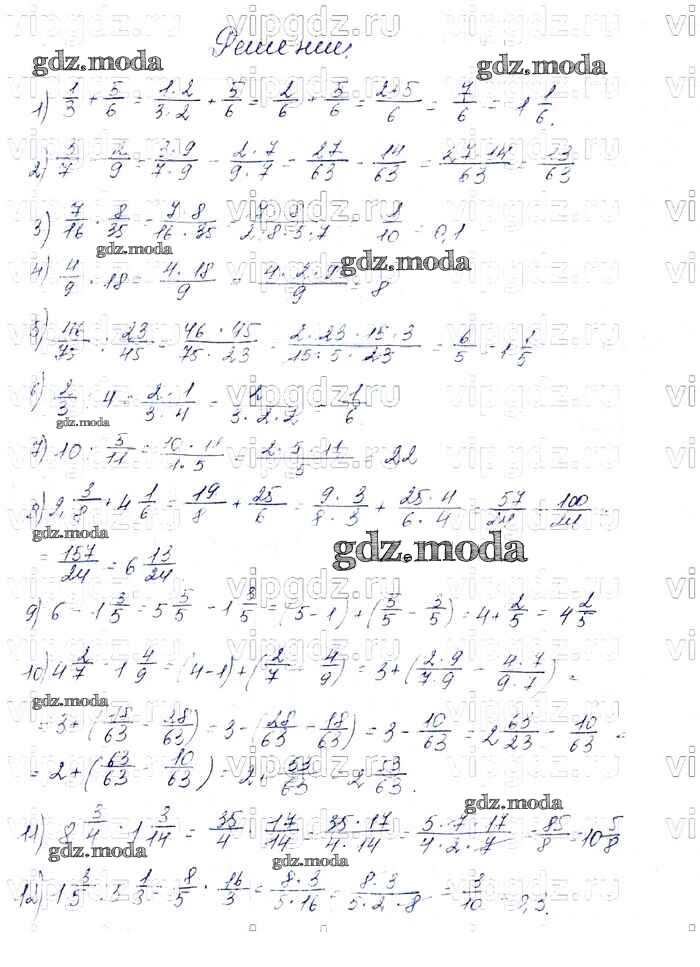 Решение:
1) 1/3 + 5/6 = 1·2/3·2 + 5/6 = 2/6 + 5/6 = 2+5/6 = 7/6 = 1 1/6.
2) 3/7 - 2/9 = 3·9/7·9 - 2·7/9·7 = 27/63 - 14/63 = 27-14/63 = 13/63
3) 7/16 · 8/35 = 7·8/16·35 = 7·8/2·8·5·7 = 1/10 = 0,1
4) 4/9 · 18 = 4·18/9 = 4·2·9/9 = 8
5) 46/75 : 23/45 = 46·45/75·23 = 2·23·15·3/15·5·23 = 6/5 = 1 1/5
6) 2/3 : 4 = 2·1/3·4 = 2/3·2·2 = 1/6
7) 10 : 5/11 = 10·11/1·5 = 2·5·11/5 = 22
8) 2 3/8 + 4 1/6 = 19/8 + 25/6 = 9·3/8·3 + 25·4/6·4 = 57/24 + 100/24 =
= 157/24 = 6 13/24
9) 6 - 1 3/5 = 5 5/5 - 1 3/5 = (5-1) + (5/5 - 3/5) = 4 + 2/5 = 4 2/5
10) 4 2/7 - 1 4/9 = (4-1) + (2/7 - 4/9) = 3 + (2·9/7·9 - 4·7/9·7) =
= 3 + (18/63 - 28/63) = 3 - (28/63 - 18/63) = 3 - 10/63 = 2 63/23 - 10/63 =
= 2 + (63/63 - 10/63) = 2 + 53/63 = 2 53/63.
11) 8 3/4 · 1 3/14 = 35/4 · 17/14 = 35·17/4·14 = 5·7·17/4·2·7 = 85/8 = 10 5/8
12) 1 3/5 : 5 1/3 = 8/5 : 16/3 = 8·3/5·16 = 8·3/5·2·8 = 3/10 = 0,3.
gdz.moda
vipgdz.ru